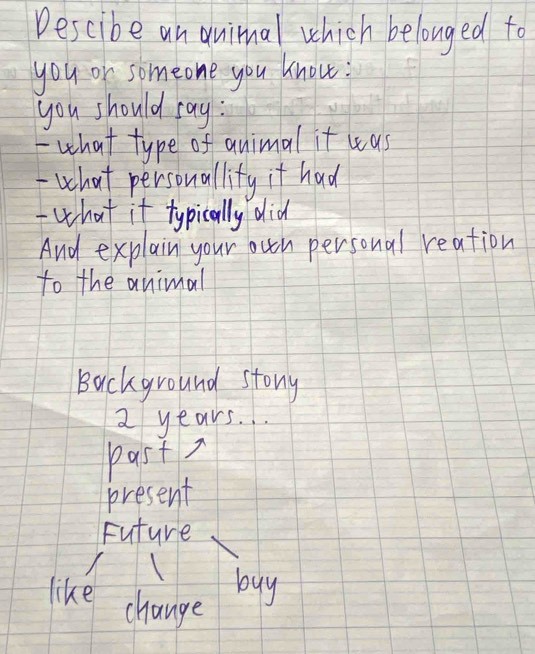 Descibe an animal which belonged to
you or someone you know:
you should say:
- what type of animal it was
- what personallity it had
- what it typically did
And explain your own personal reation
to the animal
Background stony
2 years...
past
present
Future
like
change
buy